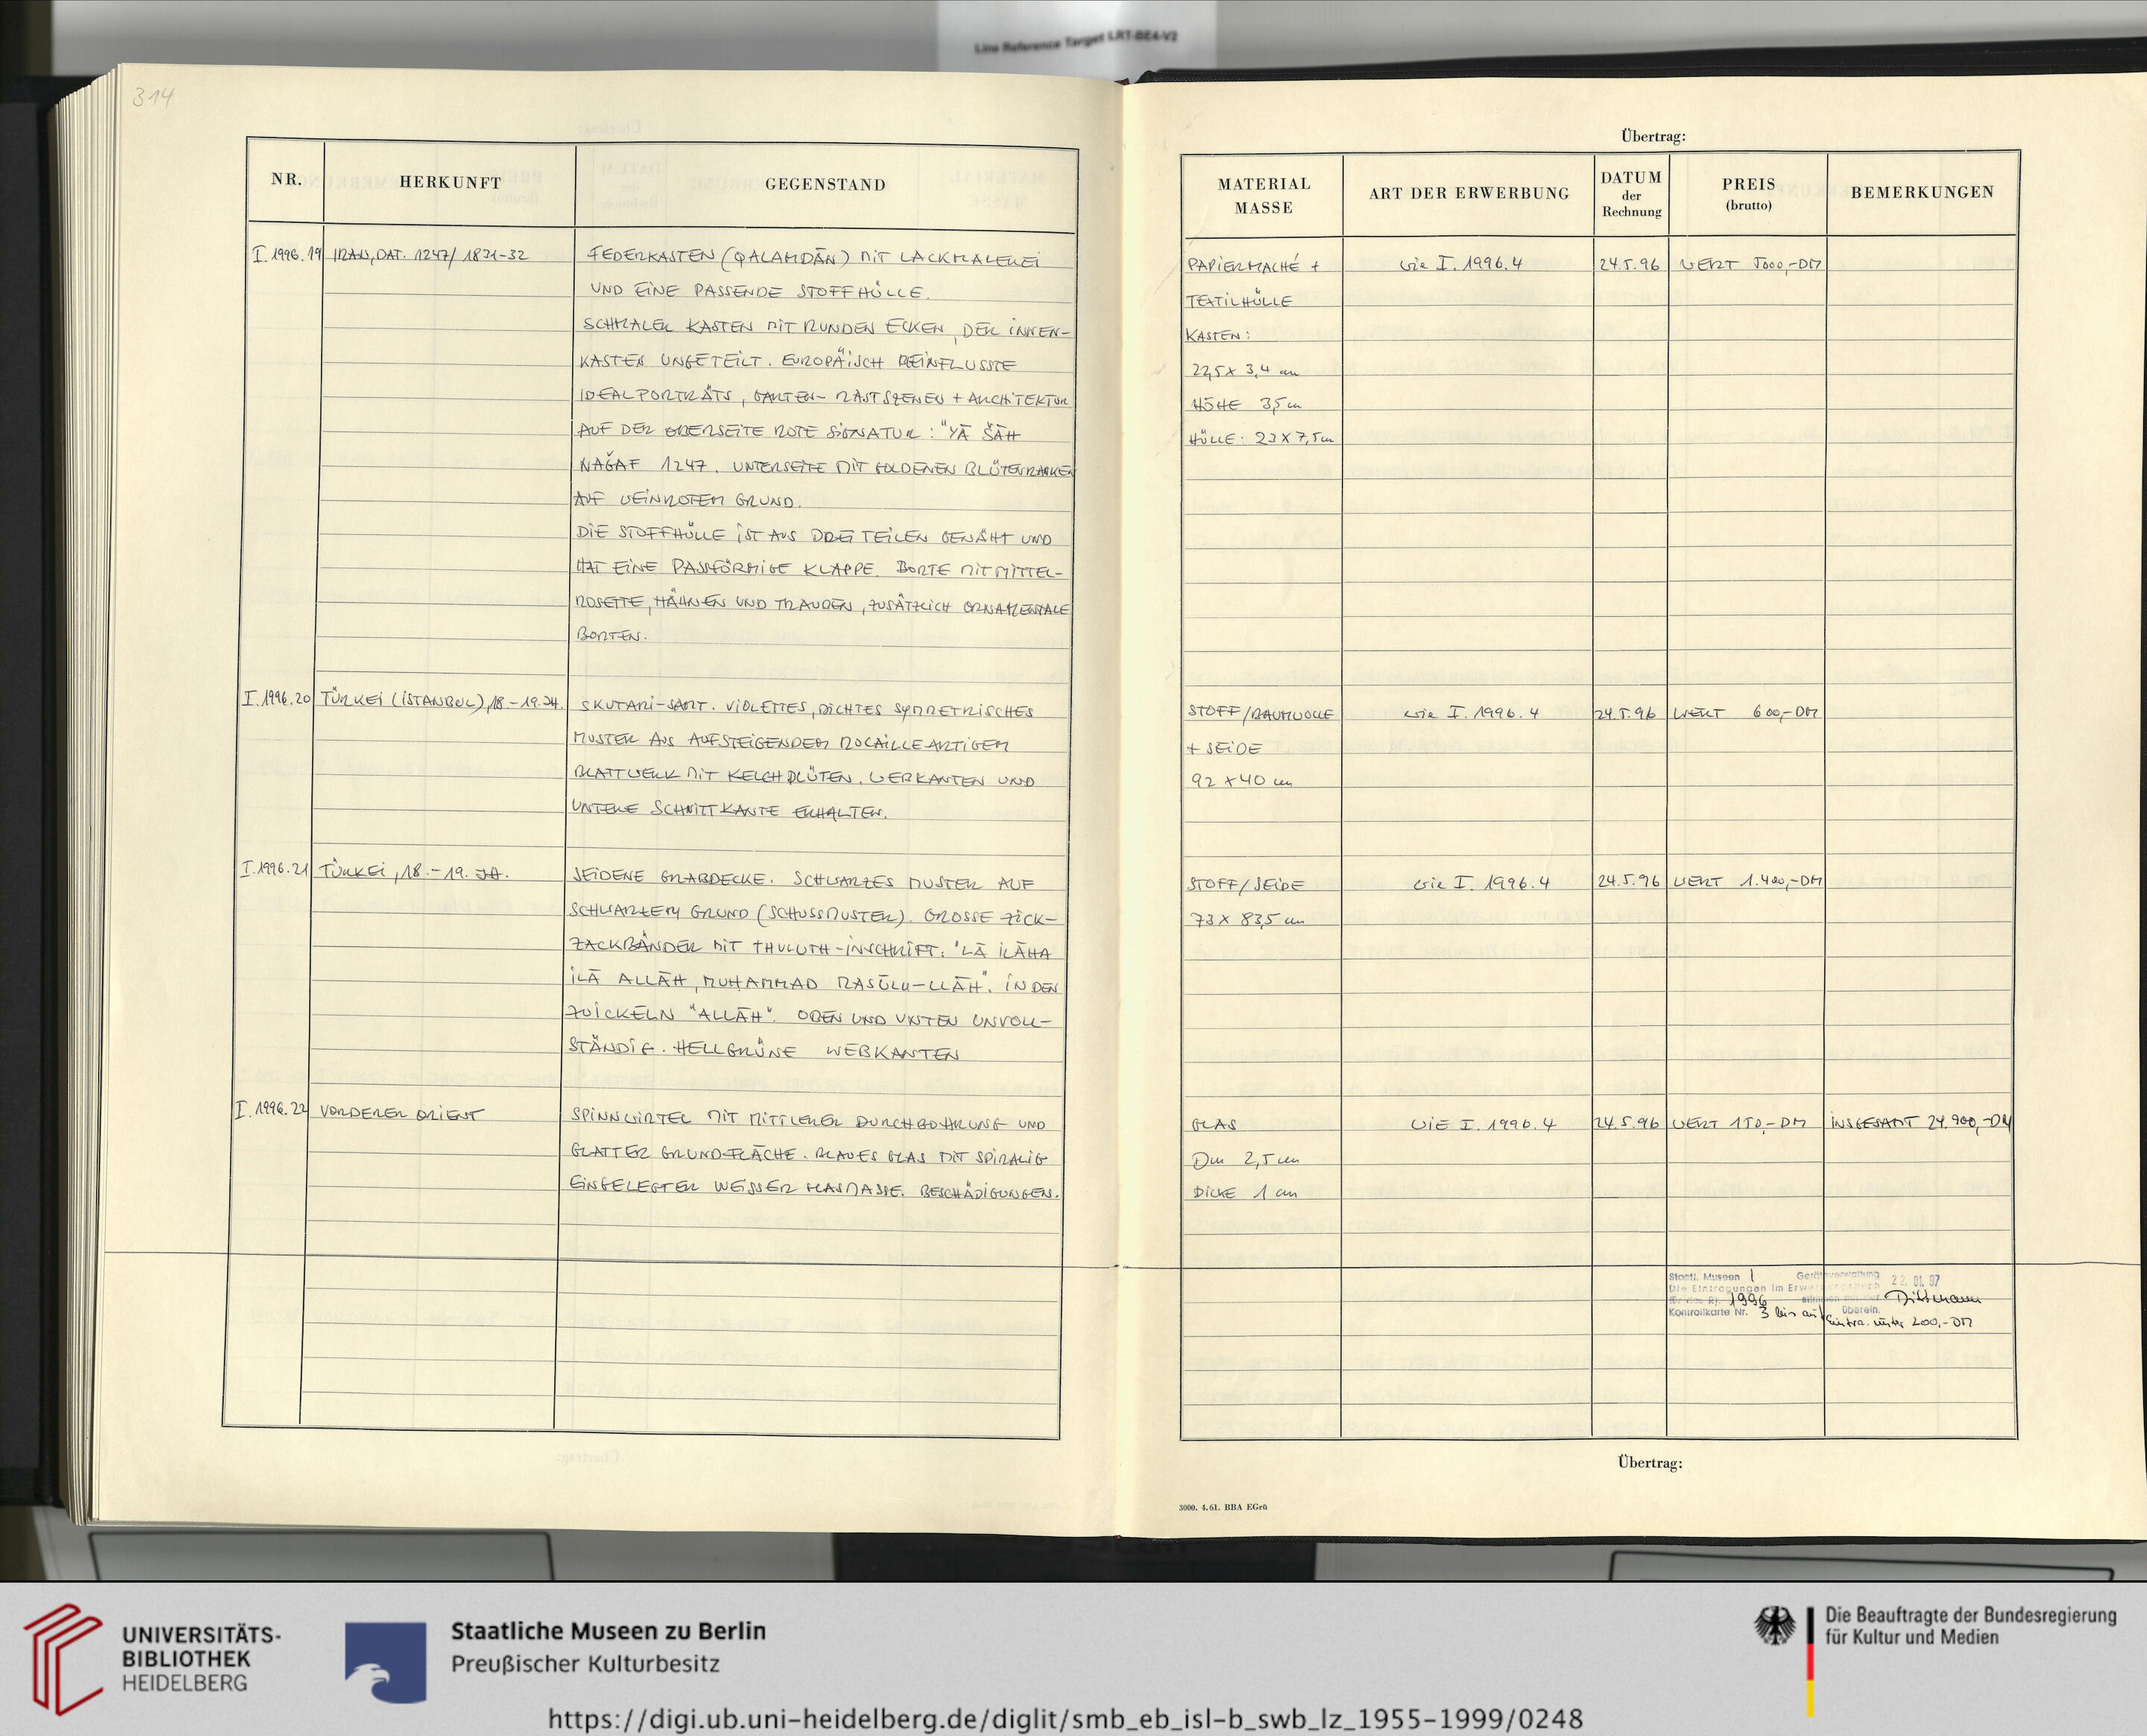 Line Reference Target LRT-BE4-V2
314
NR.
HERKUNFT
GEGENSTAND
I. 1996.19
IRAN, DAT. 1247/ 1831-32
FEDERKASTEN (QALAMDĀN) MIT LACKMALEREI
UND EINE PASSENDE STOFFHÜLLE.
SCHMALER KASTEN MIT RUNDEN ECKEN, DER INNEN-
KASTEN UNGETEILT. EUROPÄISCH BEINFLUSSTE
IDEALPORTRÄTS, GARTEN- RASTSZENEN + ARCHITEKTUR
AUF DER OBERSEITE ROTE SIGNATUR: "YĀ ŠĀH
NAǦAF 1247. UNTERSEITE MIT GOLDENEN BLÜTENRANKEN
AUF WEINROTEM GRUND.
DIE STOFFHÜLLE IST AUS DREI TEILEN GENÄHT UND
HAT EINE PASSFÖRMIGE KLAPPE. BORTE MIT MITTEL-
ROSETTE, HÄHNEN UND TRAUBEN, ZUSÄTZLICH ORNAMENTALE
BORTEN.
I. 1996.20
TÜRKEI (ISTANBUL), 18.-19. JH.
SKUTARI-SAMT. VIOLETTES, DICHTES SYMMETRISCHES
MUSTER AUS AUFSTEIGENDEM ROCAILLEARTIGEM
BLATTWERK MIT KELCHBLÜTEN. WEBKANTEN UND
UNTERE SCHNITTKANTE ERHALTEN.
I. 1996.21
TÜRKEI, 18.-19. JH.
SEIDENE GRABDECKE. SCHWARZES MUSTER AUF
SCHWARZEM GRUND (SCHUSSMUSTER). GROSSE ZICK-
ZACKBÄNDER MIT THULUTH-INSCHRIFT: "LĀ ILĀHA
ILĀ ALLĀH, MUHAMMAD RASŪLU-LLĀH". IN DEN
ZWICKELN "ALLĀH". OBEN UND UNTEN UNVOLL-
STÄNDIG. HELLGRÜNE WEBKANTEN
I. 1996.22
VORDERER ORIENT
SPINNWIRTEL MIT MITTLERER DURCHBOHRUNG UND
GLATTER GRUNDFLÄCHE. BLAUES GLAS MIT SPIRALIG
EINGELEGTER WEISSER GLASMASSE. BESCHÄDIGUNGEN.
Übertrag:
MATERIAL
MASSE
ART DER ERWERBUNG
DATUM
der
Rechnung
PREIS
(brutto)
BEMERKUNGEN
PAPIERMACHÉ +
wie I. 1996.4
24.5.96
WERT 5000,-DM
TEXTILHÜLLE
KASTEN:
22,5 x 3,4 cm
HÖHE 3,5 cm
HÜLLE: 23 X 7,5 cm
STOFF/BAUMWOLLE
wie I. 1996.4
24.5.96
WERT 600,-DM
+ SEIDE
92 x 40 cm
STOFF/SEIDE
wie I. 1996.4
24.5.96
WERT 1.400,-DM
73 X 83,5 cm
GLAS
WIE I. 1996.4
24.5.96
WERT 150,-DM
INSGESAMT 24.900,-DM
Dm 2,5 cm
DICKE 1 cm
Staatl. Museen Geräteverwaltung 22. 01. 97
Die Eintragungen im
1996
Kontrollkarte Nr. 3 bis auf überein.
unter 200,-DM
Übertrag:
3000. 4.61. BBA EGrü
UNIVERSITÄTS-
BIBLIOTHEK
HEIDELBERG
Staatliche Museen zu Berlin
Preußischer Kulturbesitz
Die Beauftragte der Bundesregierung
für Kultur und Medien
https://digi.ub.uni-heidelberg.de/diglit/smb_eb_isl-b_swb_lz_1955-1999/0248